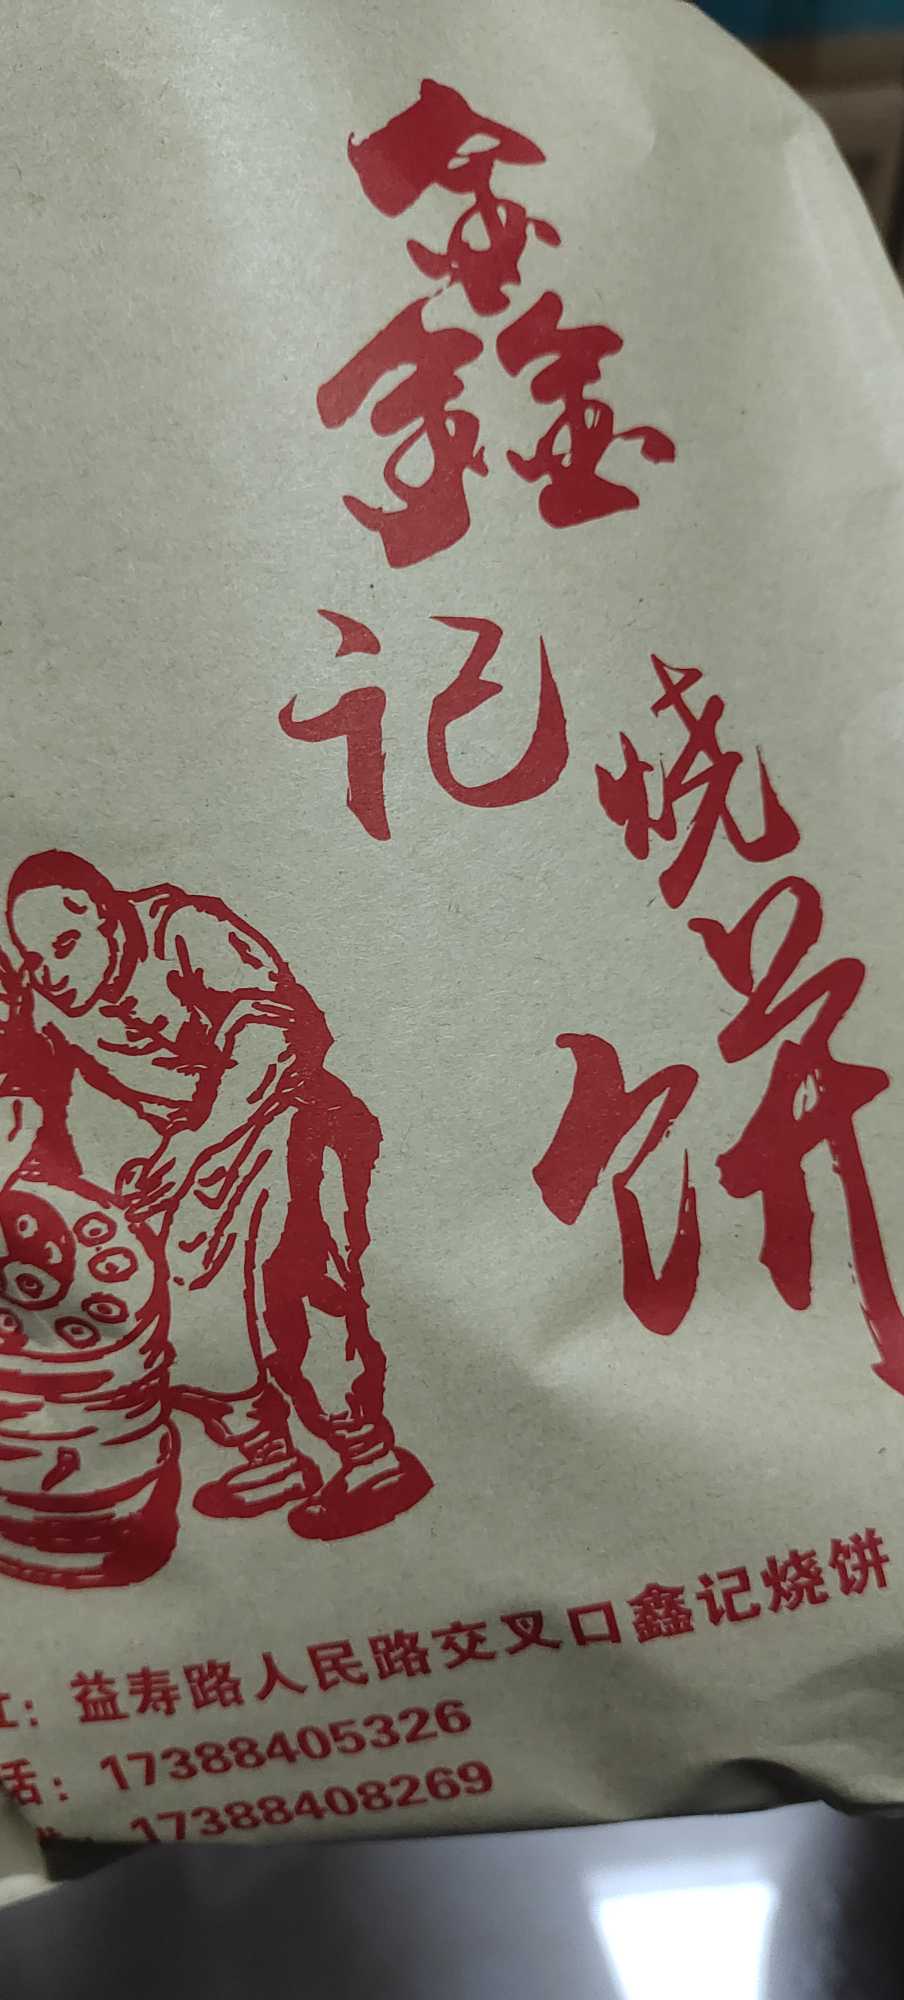 鑫记
烧饼
址：益寿路人民路交叉口鑫记烧饼
话：17388405326
17388408269